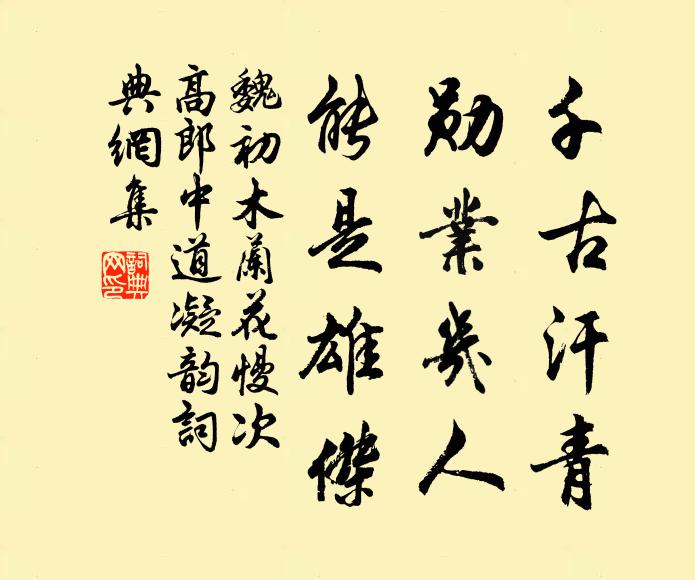 千古汗青
勋業幾人
能是雄傑
魏初木蘭花慢次
高郎中道凝韵詞
典網集
詞典網印